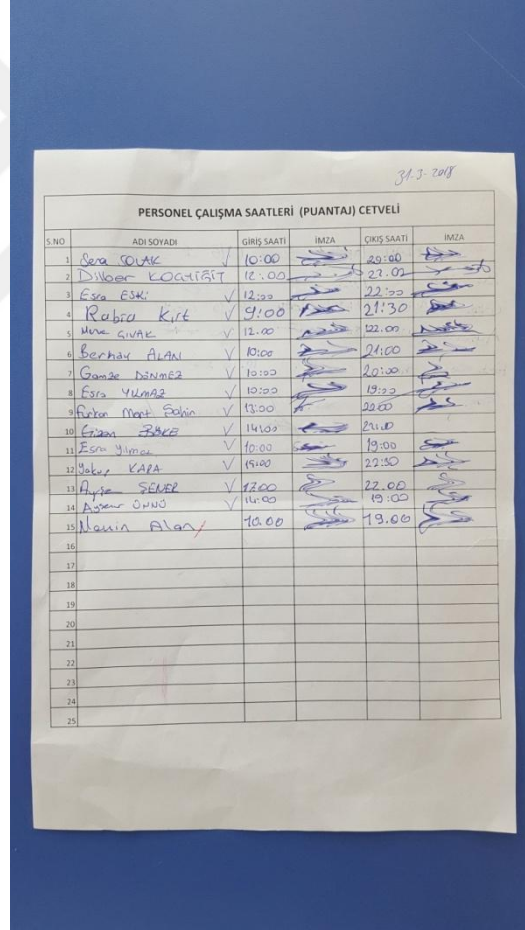 31.3.2018
PERSONEL ÇALIŞMA SAATLERİ (PUANTAJ) CETVELİ
S.NO ADI SOYADI GİRİŞ SAATİ İMZA ÇIKIŞ SAATİ İMZA
1 Sera SOLAK √ 10:00 20:00
2 Dilber √ 12:00 22.00
3 Esra ESKİ √ 12:00 22:00
4 Rabia Kırt √ 9:00 21:30
5 √ 12.00 22.00
6 Berhay ALAN √ 10:00 21:00
7 Gamze DÖNMEZ √ 10:00 20:00
8 Esra YILMAZ √ 10:00 19:00
9 Furkan Mert Şahin √ 13:00 22:00
10 √ 14:00
11 Esra Yılmaz √ 10:00 19:00
12 Yakup KARA √ 15:00 22:30
13 Ayşe ŞENER √ 22.00
14 ÜNNÜ √ 14:00 19:00
15 Alan 10.00 19.00
16
17
18
19
20
21
22
23
24
25